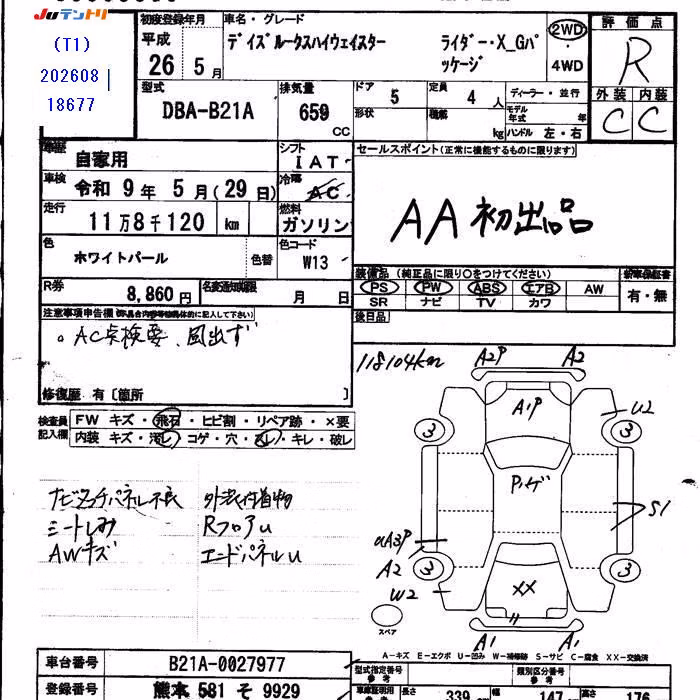 Juテントリ
(T1)
202608
18677
初度登録年月
平成
26 5月
車名・グレード
デイズルークスハイウェイスター
ライダー・X_Gパッケージ
2WD
4WD
評価点
R
外装 内装
C C
型式
DBA-B21A
排気量
659
CC
ドア
5
形状
定員
4 人
積載
kg
ディーラー・並行
モデル年式 年
ハンドル 左・右
自家用
シフト
IAT
セールスポイント(正常に機能するものに限ります)
AA初出品
車検
令和 9年 5月(29日)
冷暖
AC
走行
11万8千120 km
燃料
ガソリン
色
ホワイトパール
色替
色コード
W13
装備品 (純正品に限り○をつけてください)
PS PW ABS エアB AW
SR ナビ TV カワ
新車保証書
有・無
R券
8,860円
名変通知期限
月 日
後日品
注意事項申告欄
。AC点検要、風出ず
修復歴 有〔箇所 〕
118104km
検査員記入欄
FW キズ・飛石・ヒビ割・リペア跡・×要
内装 キズ・汚レ・コゲ・穴・スレ・キレ・破レ
ナビタッチパネル不良 外装付着物
シートしみ RフロアU
AWキズ エンドパネルU
A2P A2
A1P
U2
3 3
Pハゲ
S1
αA3P
A2
3 3
W2
XX
A1 A1
スペア
A−キズ E−エクボ U−凹み W−補修跡 S−サビ C−腐食 XX−交換済
車台番号
B21A-0027977
登録番号
熊本 581 そ 9929
型式指定番号
参考
類別区分番号
参考
長さ 339 cm 幅 147 cm 高さ 176